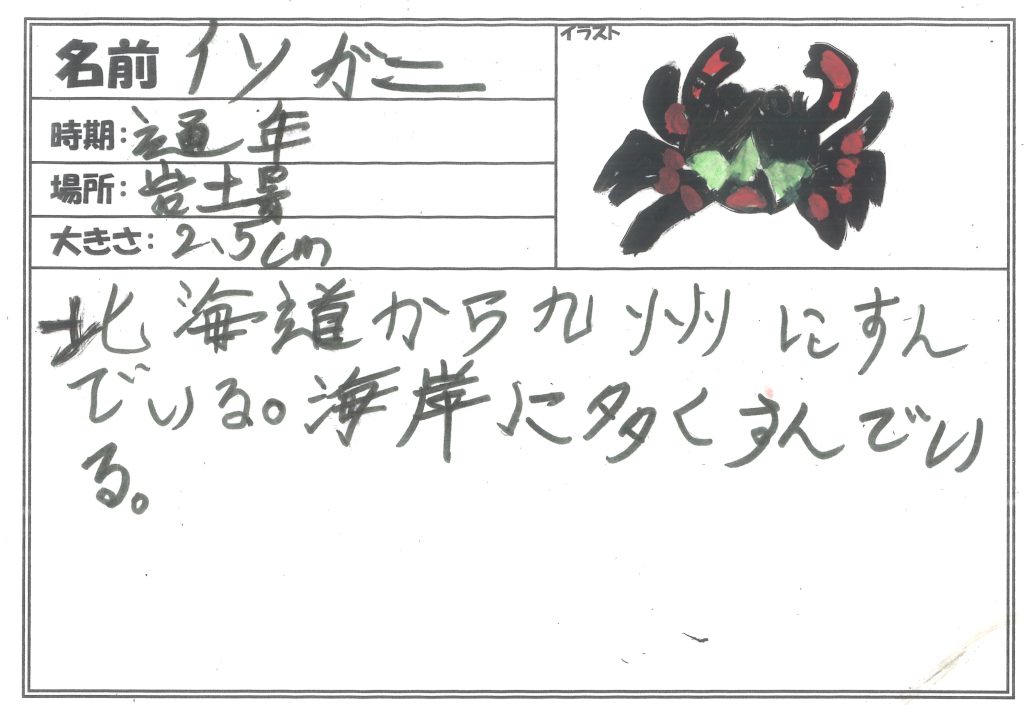 名前 イソガニ
イラスト
時期：通年
場所：岩土場
大きさ：2.5cm
北海道から九州にすん
でいる。海岸に多くすんでい
る。